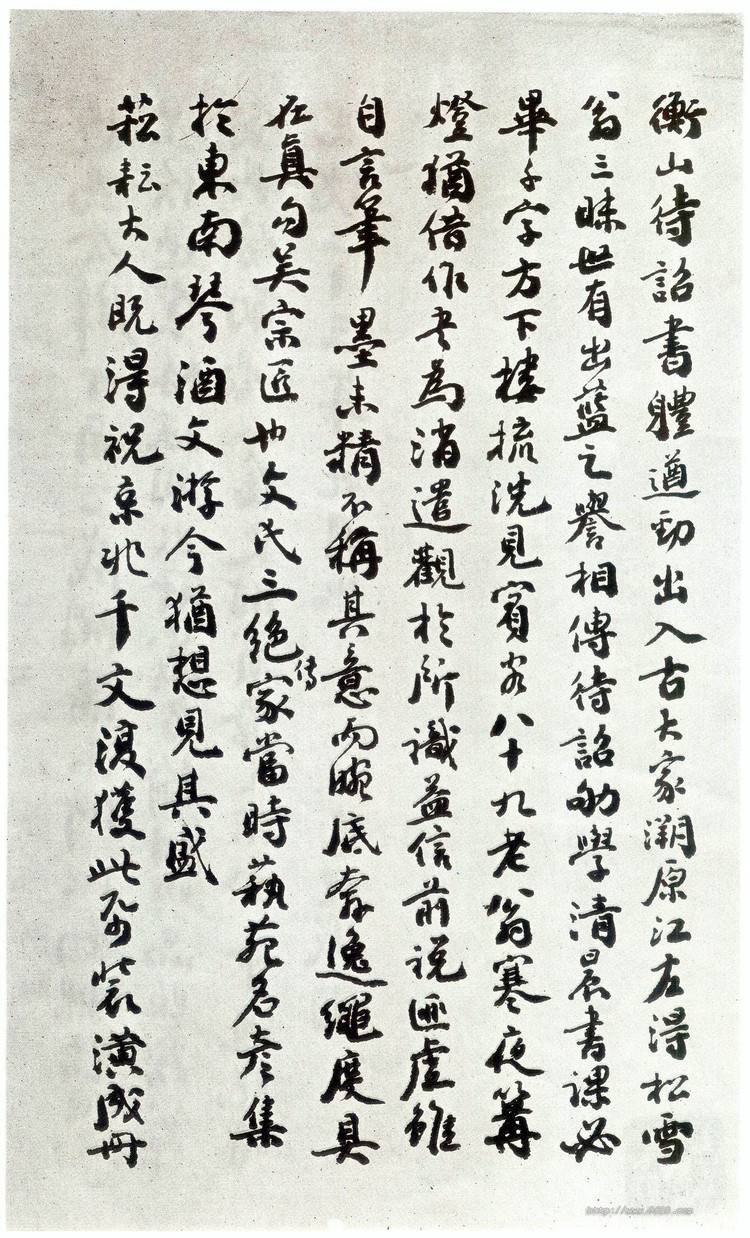 衡山待詔書體遒勁出入古大家溯原江左得松雪
翁三昧世有出藍之譽相傳待詔劬學清晨書課必
畢千字方下樓梳洗見賓客八十九老翁寒夜篝
燈猶借作書為消遣觀於所識益信前說匪虛雖
自言筆墨未精不稱其意而腕底奔逸繩度具
在真勾吴宗匠也文氏三絕傳家當時蓺苑名彥集
於東南琴酒文游今猶想見其盛
菘耘大人既得祝京兆千文復獲此
裝潢成冊